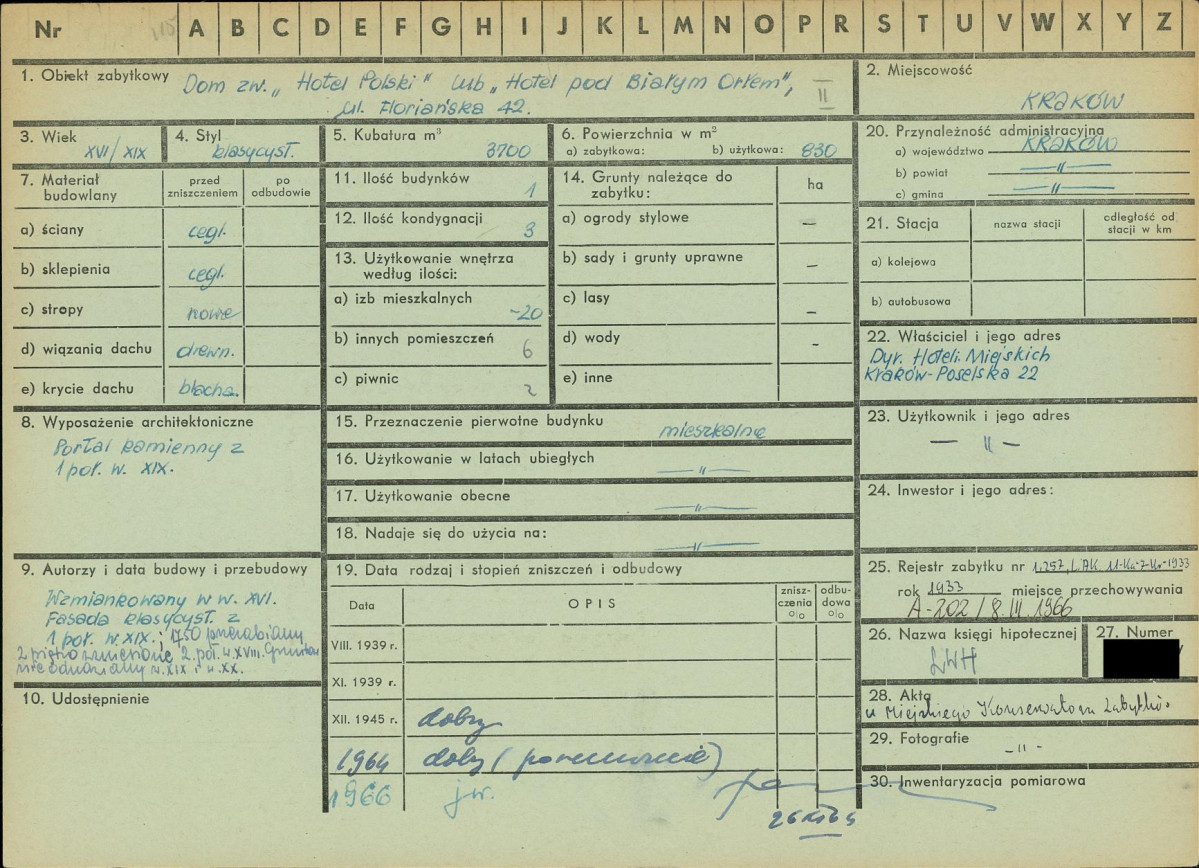 Nr 115 A B C D E F G H I J K L M N O P R S T U V W X Y Z
1. Obiekt zabytkowy Dom zw. „Hotel Polski" lub „Hotel pod Białym Orłem", II
ul. Floriańska 42.
2. Miejscowość
KRAKÓW
3. Wiek
XVI/XIX
4. Styl
klasycyst.
5. Kubatura m³
3700
6. Powierzchnia w m²
a) zabytkowa: b) użytkowa: 830
20. Przynależność administracyjna
a) województwo KRAKÓW
b) powiat —"—
c) gmina —"—
7. Materiał budowlany
przed zniszczeniem
po odbudowie
a) ściany cegl.
b) sklepienia cegl.
c) stropy nowe
d) wiązania dachu drewn.
e) krycie dachu blacha.
11. Ilość budynków
1
12. Ilość kondygnacji
3
13. Użytkowanie wnętrza
według ilości:
a) izb mieszkalnych
-20
b) innych pomieszczeń
6
c) piwnic
2
14. Grunty należące do
zabytku:
ha
a) ogrody stylowe –
b) sady i grunty uprawne –
c) lasy –
d) wody -
e) inne
21. Stacja
nazwa stacji
odległość od
stacji w km
a) kolejowa
b) autobusowa
22. Właściciel i jego adres
Dyr. Hoteli Miejskich
Kraków-Poselska 22
8. Wyposażenie architektoniczne
Portal kamienny z
1 poł. w. XIX.
15. Przeznaczenie pierwotne budynku
mieszkalne
16. Użytkowanie w latach ubiegłych
—"—
17. Użytkowanie obecne
—"—
18. Nadaje się do użycia na:
—"—
23. Użytkownik i jego adres
— " —
24. Inwestor i jego adres:
9. Autorzy i data budowy i przebudowy
Wzmiankowany w w. XVI.
Fasada klasycyst. z
1 poł. w. XIX. i 1750 przerabiany
2 piętro zmienione 2. poł. w. XVIII.
w. XIX i w. XX.
10. Udostępnienie
19. Data rodzaj i stopień zniszczeń i odbudowy
Data
OPIS
znisz-
czenia
%
odbu-
dowa
%
VIII. 1939 r.
XI. 1939 r.
XII. 1945 r. dobry
1964
1966 jw.
25. Rejestr zabytku nr
rok 1933 miejsce przechowywania
A-202/8 III 1966
26. Nazwa księgi hipotecznej
LWH
27. Numer
28. Akta
u Miejskiego Konserwatora Zabytków
29. Fotografie
- " -
30. Inwentaryzacja pomiarowa